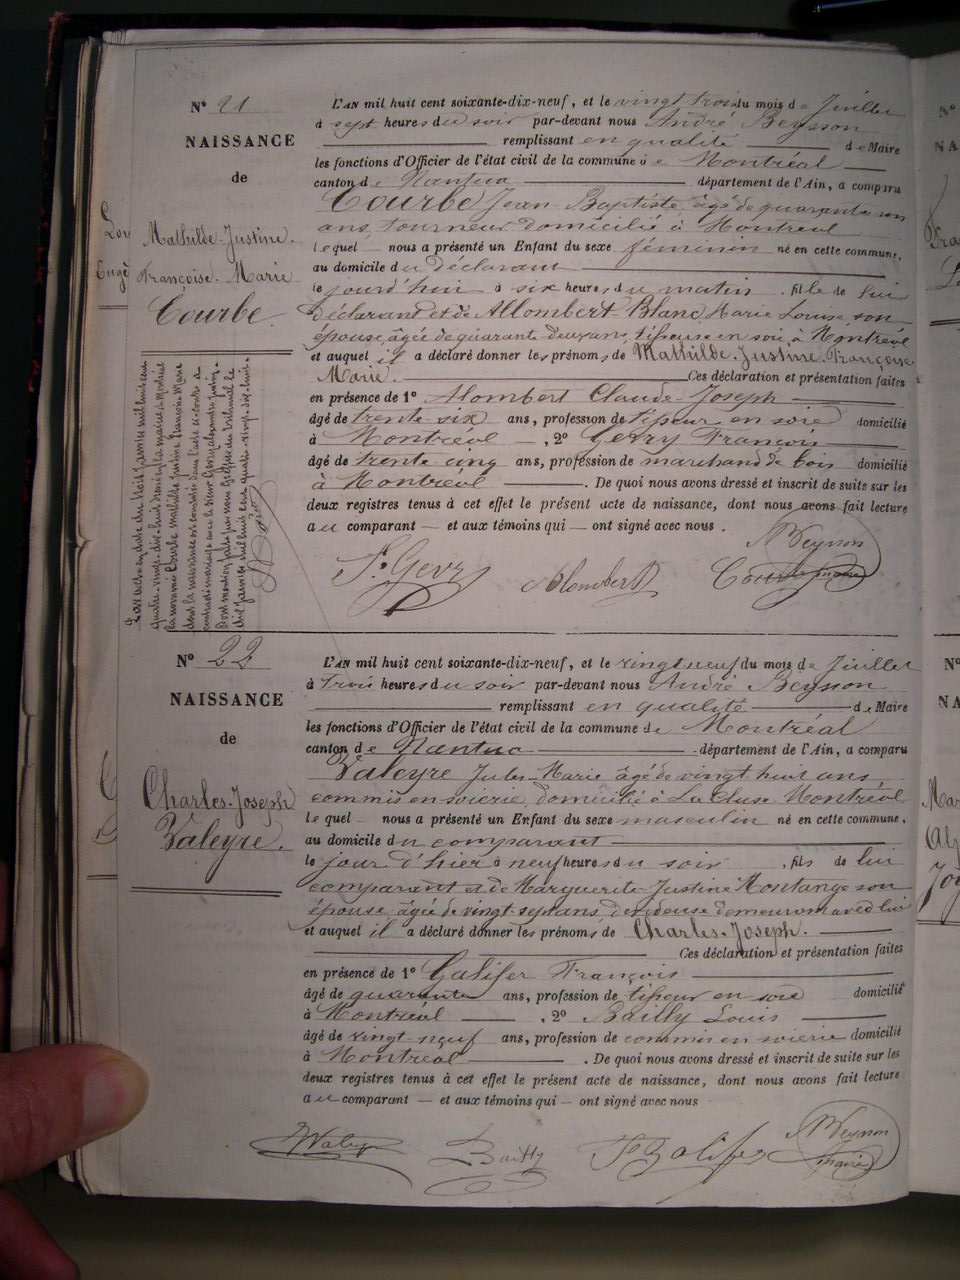 N° 21
NAISSANCE
de
Mathilde-Justine.
Françoise. Marie
Courbe.
L'AN mil huit cent soixante-dix-neuf, et le vingt trois du mois de Juillet
à sept heures du soir par-devant nous André Beysson
remplissant en qualité de Maire
les fonctions d'Officier de l'état civil de la commune de Montréal
canton de Nantua département de l'Ain, a comparu
Courbe Jean-Baptiste, âgé de quarante un
ans, tourneur domicilié à Montréal
lequel nous a présenté un Enfant du sexe féminin né en cette commune,
au domicile du déclarant
le jourd'hui à six heures du matin. fille de lui
Déclarant et de Allombert Blanc Marie Louise, son
épouse, âgée de quarante deux ans, tisseuse en soie, à Montréal
et auquel il a déclaré donner les prénoms de Mathilde-Justine-Françoise
Marie. Ces déclaration et présentation faites
en présence de 1° Alombert Claude-Joseph
âgé de trente-six ans, profession de tisseur en soie domicilié
à Montréal, 2° Gevry François
âgé de trente cinq ans, profession de marchand de bois domicilié
à Montréal. De quoi nous avons dressé et inscrit de suite sur les
deux registres tenus à cet effet le présent acte de naissance, dont nous avons fait lecture
au comparant — et aux témoins qui — ont signé avec nous.
Beysson
F. Gevry Alombert Courbe maire
N° 22
NAISSANCE
de
Charles-Joseph
Valeyre.
L'AN mil huit cent soixante-dix-neuf, et le vingt neuf du mois de Juillet
à trois heures du soir par-devant nous André Beysson
remplissant en qualité de Maire
les fonctions d'Officier de l'état civil de la commune de Montréal
canton de Nantua département de l'Ain, a comparu
Valeyre Jules-Marie âgé de vingt huit ans,
commis en soierie, domicilié à La Cluse Montréal
lequel nous a présenté un Enfant du sexe masculin né en cette commune,
au domicile du comparant
le jour d'hier à neuf heures du soir, fils de lui
comparant et de Marguerite-Justine Montange son
épouse, âgée de vingt-sept ans, demeurant avec lui
et auquel il a déclaré donner les prénoms de Charles-Joseph.
Ces déclaration et présentation faites
en présence de 1° Galifer François
âgé de quarante ans, profession de tisseur en soie domicilié
à Montréal, 2° Bailly Louis
âgé de vingt-neuf ans, profession de commis en soierie domicilié
à Montréal. De quoi nous avons dressé et inscrit de suite sur les
deux registres tenus à cet effet le présent acte de naissance, dont nous avons fait lecture
au comparant — et aux témoins qui — ont signé avec nous
JValeyre Bailly F Galifer Beysson
maire